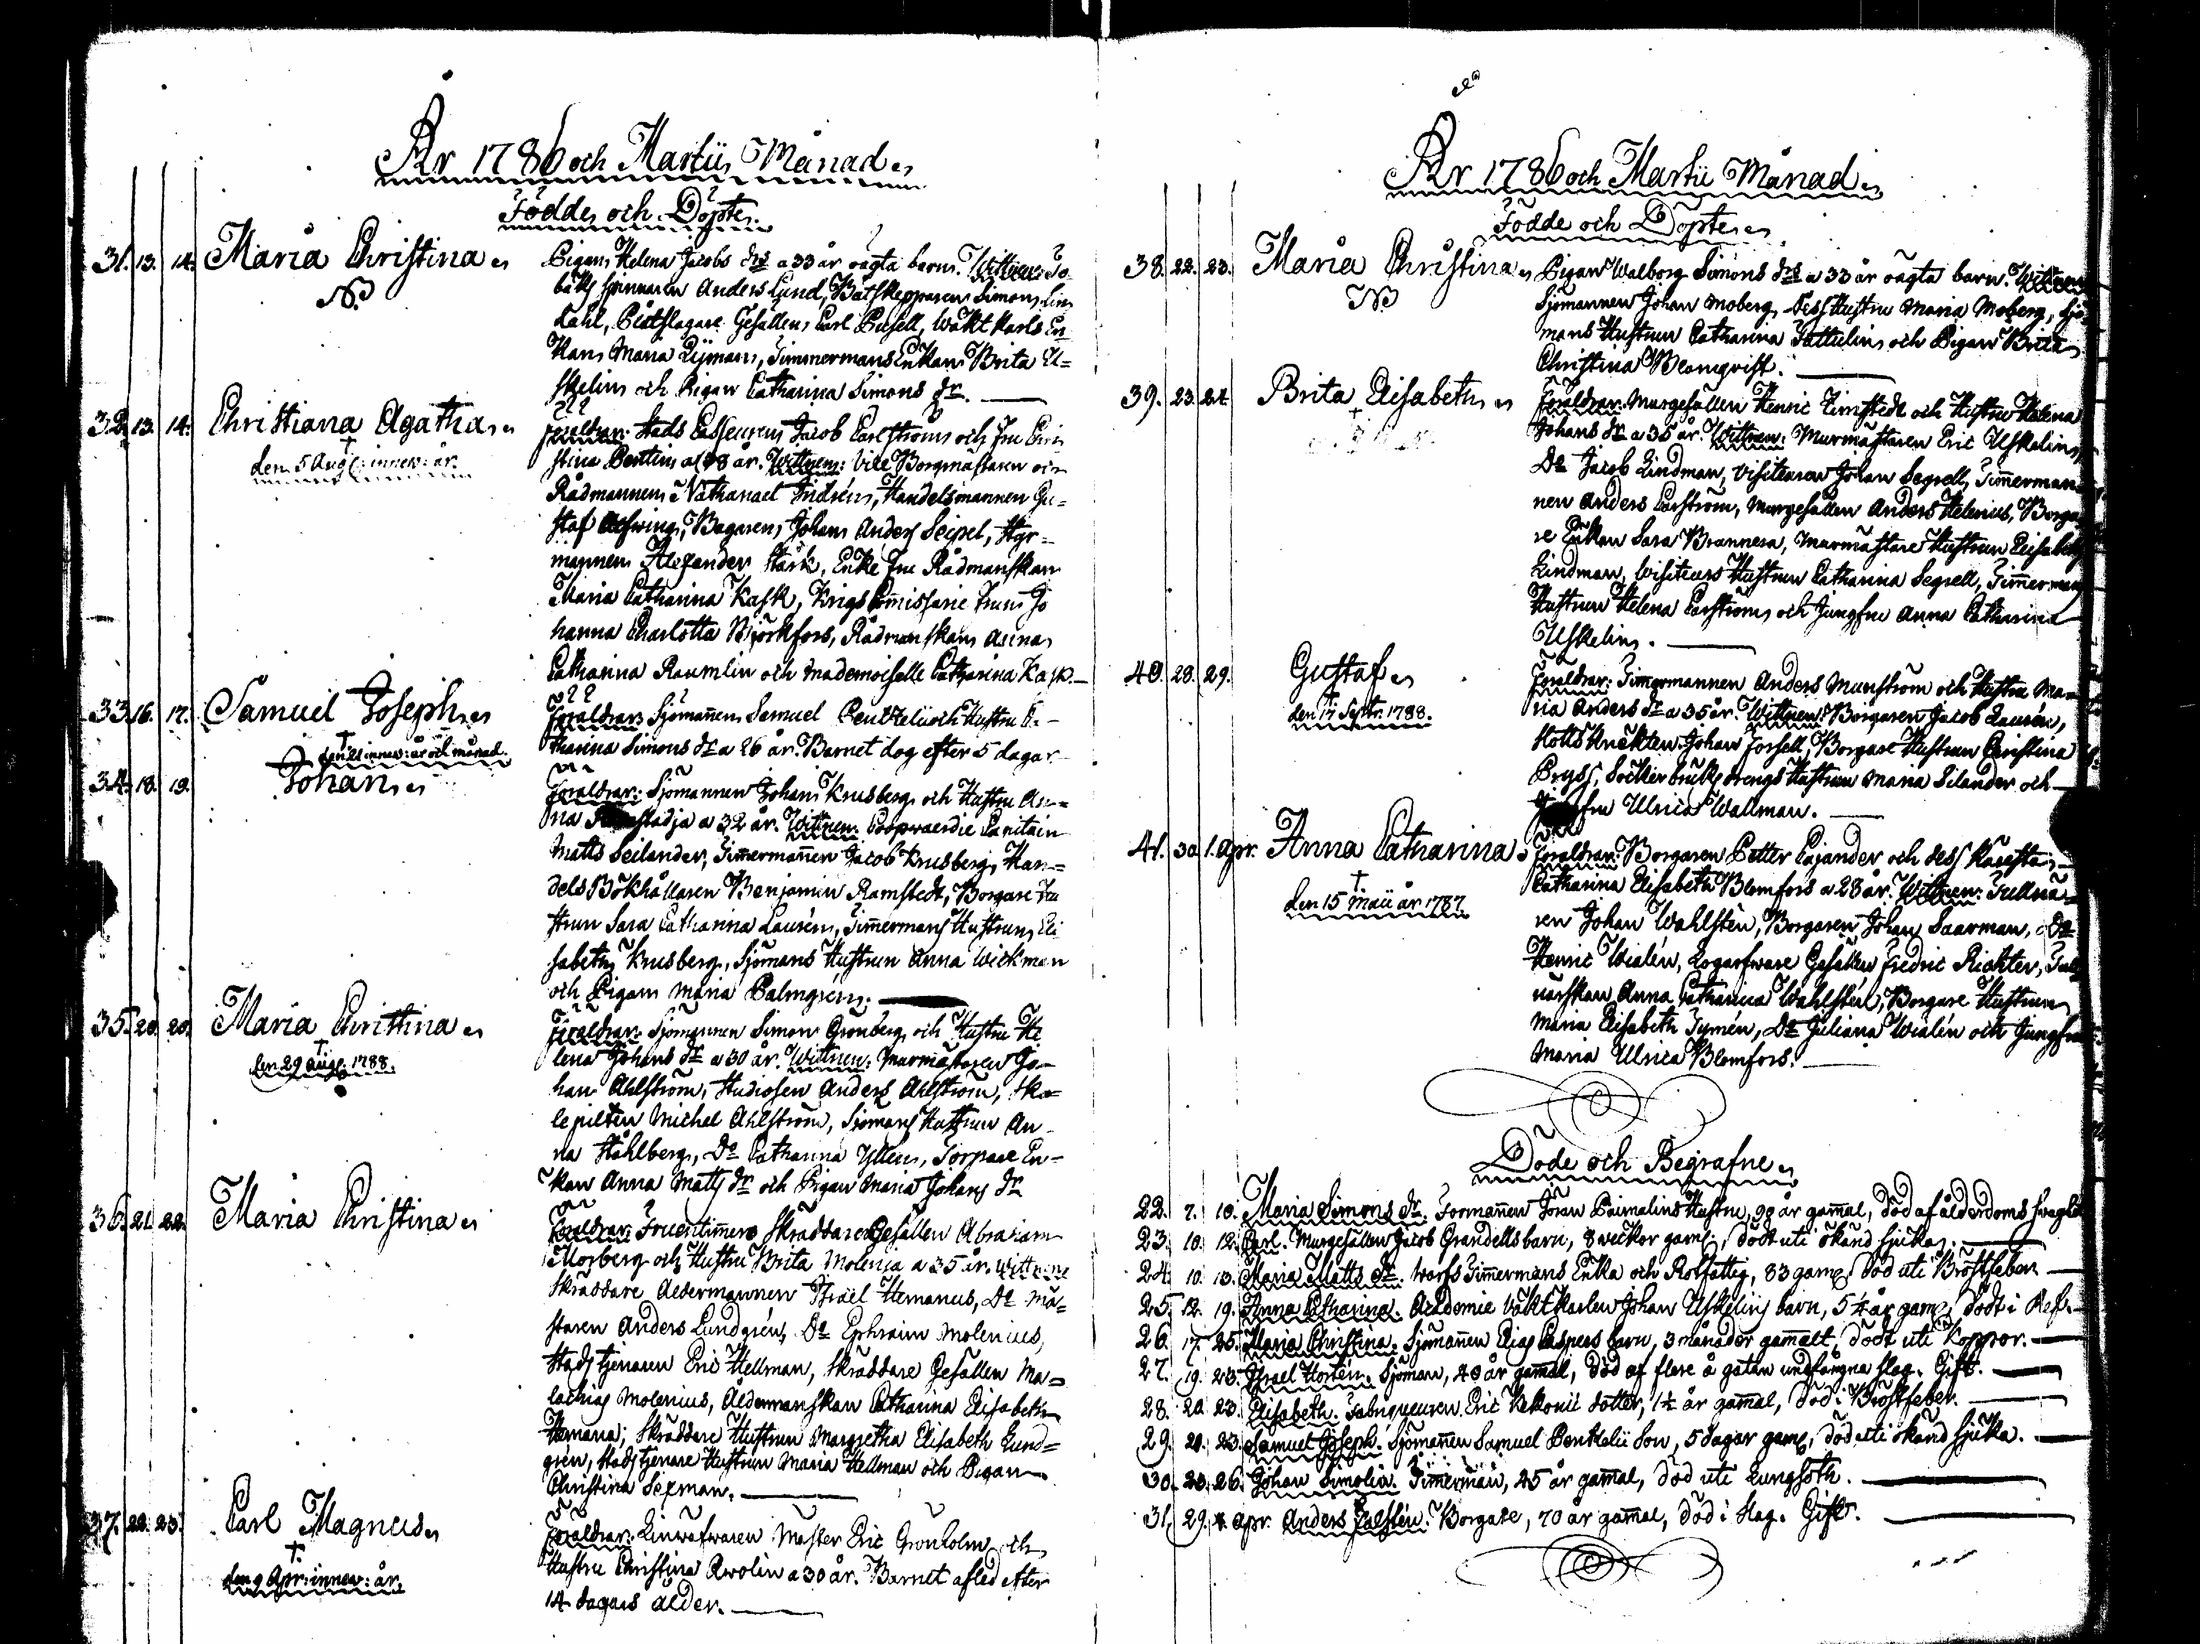 År 1786 och Martii Månad
Födde och Döpte
31. 13. 14. Maria Christina
NB
Pigans Helena Jacobs drs a 33 år oägta barn. Wittnen: To-
baks spinnaren Anders Lund, Båtskepparen Simon
Gesällen Carl Wakt Karls En-
kan Maria Timmermans Enkan Brita U-
skelin och Pigan Catharina Simons dr.
32. 13. 14. Christiana Agatha
†
den 5 Aug: innew: år.
Föräldrar: Stads Casseuren Jacob Carlström och Fru Chri-
stina år. Wittnen: Vice Borgmästaren och
Rådmannen Nathanael Handelsmannen Gu-
staf Bagaren Johan Anders Seipel, Styr-
mannen Alexander Stark, Enke Fru Rådmanskan
Maria Catharina Kask, Krigs Commissarie Frun Jo
hanna Charlotta Björkfors, Rådmanskan Anna
Catharina Raumlin och Mademoiselle Catharina Kask
33. 16. 17. Samuel Joseph
†
den 21 innew: år och månad.
Föräldrar: Sjömannen Samuel Pentzelii och Hustru Ca-
tharina Simons dr a 26 år. Barnet dog efter 5 dagar
34. 18. 19. Johan
Föräldrar: Sjömannen Johan Krusberg och Hustru An-
na a 32 år. Wittnen: Coopvaerdie Capitain
Matts Seilander, Timmermannen Jacob Krusberg, Han-
dels Bokhållaren Benjamin Ramstedt, Borgare Hu
strun Sara Catharina Laurén, Timmermans Hustrun Eli
sabeth Krusberg, Sjömans Hustrun Anna Wickman
och Pigan Maria Palmgrén.
35. 20. 20. Maria Christina
†
den 29 Aug: 1788.
Föräldrar: Sjömannen Simon Grönberg och Hustru He
lena Johans dr a 30 år. Wittnen: Murmästaren Jo-
han Ahlström, Studiosen Anders Ahlström, Sko-
lepilten Michel Ahlström, Sjömans Hustrun An-
na Ståhlberg, Do Catharina Torpare En-
kan Anna Matts dr och Pigan Maria Johans dr
36. 21. 22. Maria Christina
Föräldrar: Skräddare Gesällen Abraham
Morberg och Hustru Brita Molenia a 35 år. Wittnene
Skräddare Åldermannen Israel Hemanus, Do Mä-
staren Anders Lundgrén, Do Ephraim Molenius,
Stads tjenaren Eric Hellman, Skräddare Gesällen Ma-
lachias Molenius, Åldermanskan Catharina Elisabeth
Hemana, Skräddare Hustrun Margretha Elisabeth Lund-
grén, Stads tjenare Hustrun Maria Hellman och Pigan
Christina Sexman.
37. 22. 23. Carl Magnus
†
den 9 Apr: innew: år.
Föräldrar: Linwäfwaren Mäster Eric Grönholm och
Hustru Christina a 30 år. Barnet afled efter
14 dagars ålder.
År 1786 och Martii Månad
Födde och Döpte
38. 22. 23. Maria Christina
NB
Pigan Walborg Simons drs a 33 år oägta barn. Wittnen
Sjömannen Johan Moberg, dess Hustru Maria Moberg, Sjö-
mans Hustrun Catharina och Pigan Brita
Christina Blomqvist.
39. 23. 24. Brita Elisabeth
†
Föräldrar: Murgesällen Henric och Hustru Helena
Johans dr a 35 år. Wittnen: Murmästaren Eric Uskelin,
Do Jacob Lindman, Visiteuren Johan Segrell, Timmerman-
nen Anders Carström, Murgesällen Anders Helenius, Borga-
re Enkan Sara Brannera, Murmästare Hustrun Elisabeth
Lindman, Visiteurs Hustrun Catharina Segrell, Timmermans
Hustrun Helena Carström och Jungfru Anna Catharina
Uskelin.
40. 28. 29. Gustaf
†
den 14 Septr: 1788.
Föräldrar: Timmermannen Anders Munström och Hustru Ma-
ria Anders dr a 35 år. Wittnen: Borgaren Jacob Laurén,
Slotts Knekten Johan Forsell, Borgare Hustrun Christina
Bryss, Sockerbruks drengs Hustrun Maria Silander och
Jungfru Ulrica Wallman.
41. 30. 1. Apr. Anna Catharina
†
den 15 Maii år 1787.
Föräldrar: Borgaren Petter Cajander och dess Käresta
Catharina Elisabeth Blomfors a 28 år. Wittnen: Tullnä-
ren Johan Wahlstén, Borgaren Johan Saarman, Do
Henric Wialén, Logarfware Gesällen Fredric Richter, Tull-
närskan Anna Catharina Wahlstén, Borgare Hustrun
Maria Elisabeth Tymén, Do Juliana Wialén och Jungfru
Maria Ulrica Blomfors.
Döde och Begrafne
22. 7. 10. Maria Simons dr. Formannen Jöran Hustru, 90 år gammal, död af ålderdoms svaghet
23. 10. 12. Carl. Murgesällen Jacob Grandells barn, 8 veckor gam:, dödt uti okänd sjuka.
24. 10. 13. Maria Matts dr. Warfs Timmermans Enka och Rotfattig, 83 gam, död uti Bröstfeber
25. 12. 19. Anna Catharina. Academie Wäkt Karlen Johan Uskelins barn, 5 1/4 år gam, dödt i
26. 17. 25. Maria Christina. Sjömannen Elias Caspers barn, 3 månader gammalt, dödt uti Koppor.
27. 19. 23. Israel Hortén. Sjöman, 40 år gammal, död af flere å gatan undfångna slag. Gift.
28. 20. 23. Elisabeth. Fabriqueuren Eric Kekonii dotter, 1 1/2 år gammal, död i Bröstfeber.
29. 21. 23. Samuel Joseph. Sjömannen Samuel Pentzelii Son, 5 dagar gam, död uti okänd sjuka.
30. 23. 26. Johan Simolin. Timmerman, 45 år gammal, död uti Lungsoth.
31. 29. 4. Apr. Anders Borgare, 70 år gammal, död i slag. Gift.